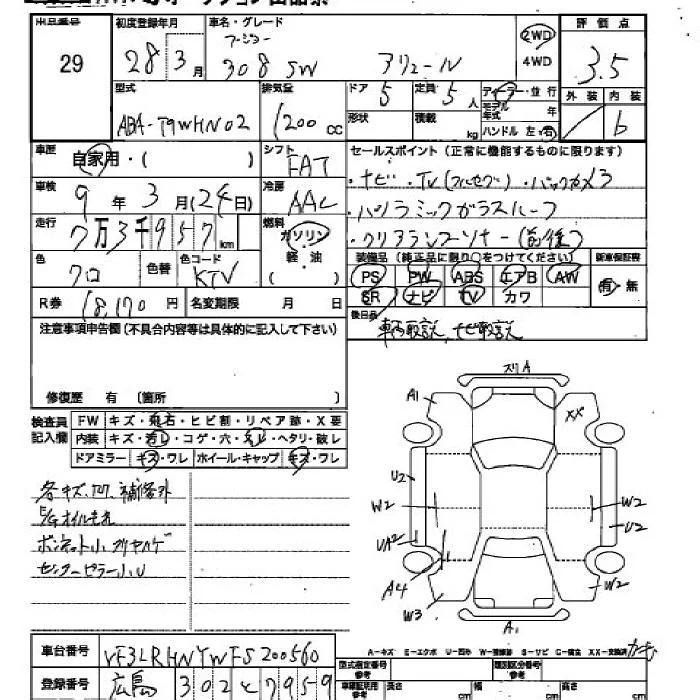 出品番号 29
初度登録年月 28年 3月
車名・グレード プジョー 308 SW アリュール
2WD 4WD
評価点 3.5
型式 ABA-T9WHN02
排気量 1200 cc
ドア 5 定員 5人
形状 積載 kg
ディーラー・並行
モデル年式 年
ハンドル 左・右
外装 内装 b
車歴 自家用・( )
シフト FAT
車検 9年 3月(24日)
冷房 AAC
走行 7万3千957km
燃料 ガソリン 軽・油 ( )
色 クロ 色替 色コード KTV
R券 18,170円 名変期限 月 日
セールスポイント(正常に機能するものに限ります)
・ナビ・TV(フルセグ)・バックカメラ
・パノラミックガラスルーフ
・クリアランスソナー(前後)
装備品(純正品に限り○をつけてください) 新車保証書
PS PW ABS エアB AW 有・無
SR ナビ TV カワ
後日品 車両取説、ナビ取説
注意事項申告欄(不具合内容等は具体的に記入して下さい)
修復歴 有 〔箇所
検査員記入欄
FW キズ・飛石・ヒビ割・リペア跡・X要
内装 キズ・汚レ・コゲ・穴・スレ・ヘタリ・破レ
ドアミラー キズ・ワレ ホイール・キャップ キズ・ワレ
各キズ、凹、補修外
E/Gオイルモレ
ボンネット小
センターピラー小U
スリA
A1 XX
U2
W2 W2
UA2 U2
A4
W3 W2
A1
A-キズ E-エクボ U-凹み W-補修跡 S-サビ C-腐食 XX-交換済
車台番号 VF3LRHNYWFS200560
型式指定番号 参考 類別区分番号 参考
登録番号 広島 302 と 7959
車庫証明用 参考 長さ cm 幅 cm 高さ cm